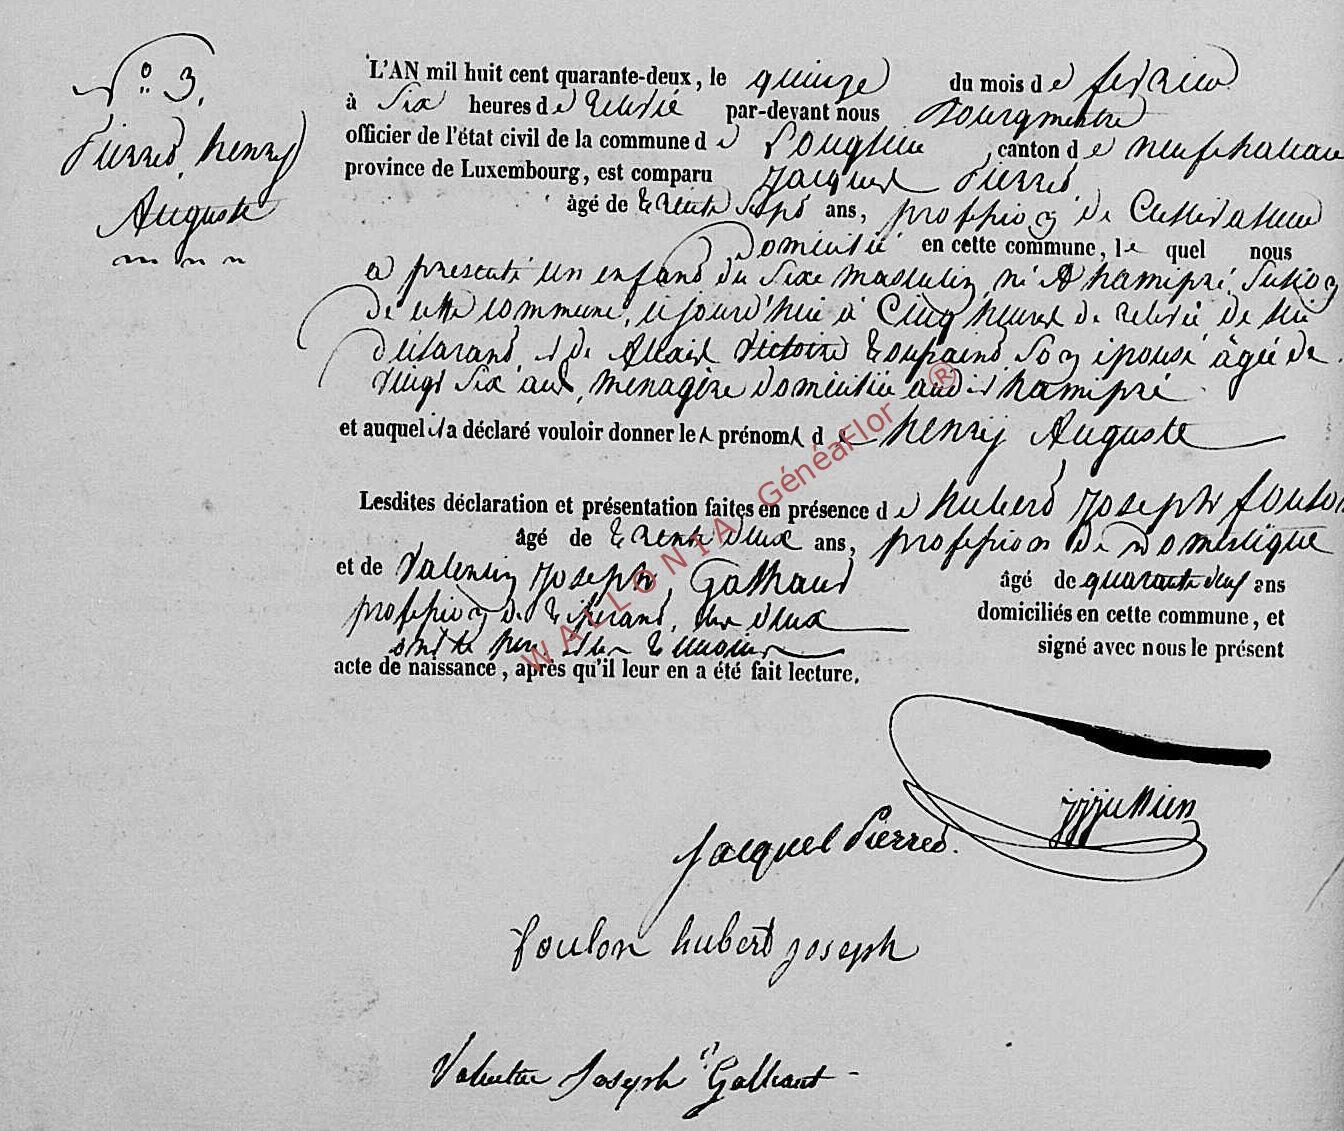 N° 3.
Pierred, henry
Auguste
L'AN mil huit cent quarante-deux, le quinze du mois de fevrier
à Six heures de relevée par-devant nous Bourgmestre
officier de l'état civil de la commune de Longlier, canton de neufchateau
province de Luxembourg, est comparu Jacques Pierred
âgé de trente Sept ans, profession de Cultivateur
Domicilié en cette commune, lequel nous
a presenté un enfant du Sexe masculin, né à hamipré, Section
de cette commune, cejourd'hui à Cinq heures de relevée, de lui
déclarant, et de Victoire Son epouse âgée de
vingt Six ans, menagère domiciliée audit hamipré
et auquel il a déclaré vouloir donner les prénoms de henry Auguste
Lesdites déclaration et présentation faites en présence de hubert Joseph foulon
âgé de trente deux ans, profession de Domestique
et de Valentin Joseph Galhaut âgé de quarante neuf ans
profession de tisserand, deux domiciliés en cette commune, et
ont signé avec nous le présent
acte de naissance, après qu'il leur en a été fait lecture.
WALLONIA GénéaFlor ®
Jacques Pierred.
foulon hubert joseph
Valentin Joseph Galhaut